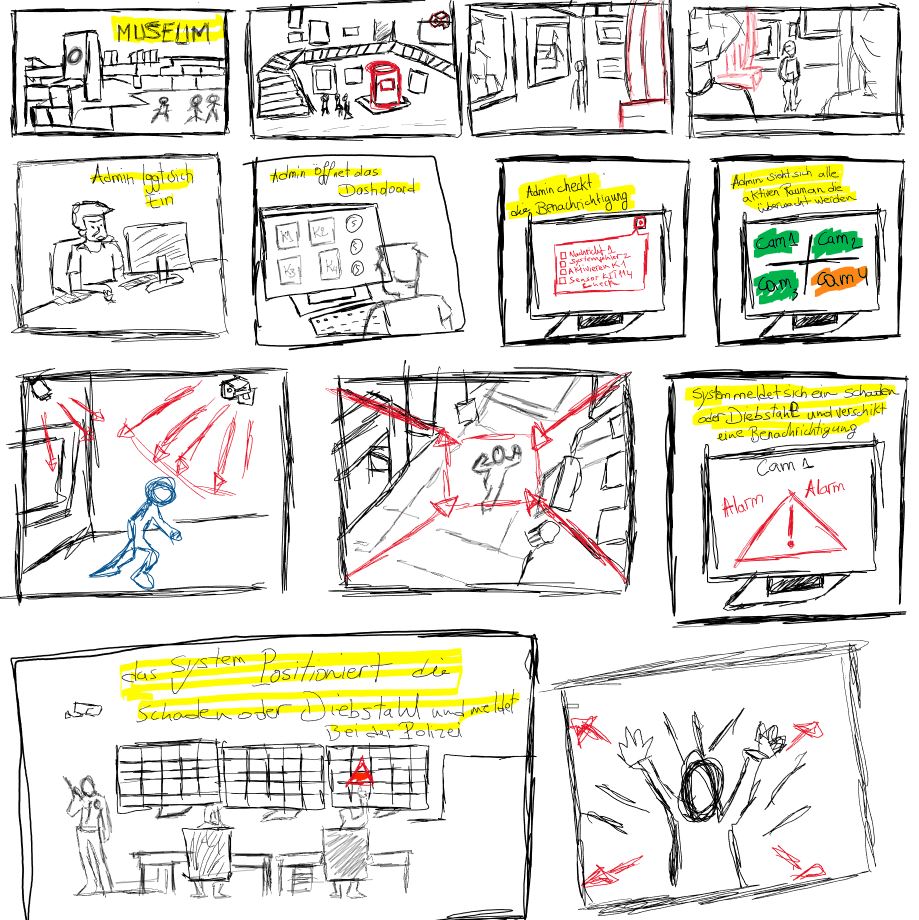 MUSEUM
Admin loggt sich
Ein
Admin öffnet das
Dashdoard
K2
Admin checkt
die Benachrichtigung
Nachricht 1
Systemfehler 2
Aktivieren K1
Sensor
check
Admin sieht sich alle
aktiven die
überwacht werden
Cam 1
Cam 2
Cam 3
Cam 4
System meldet sich ein schaden
oder Diebstahl und verschikt
eine Benachrichtigung
Cam 1
Alarm
Alarm
!
das System Positioniert die
schaden oder Diebstahl und meldet
Bei der Polizei